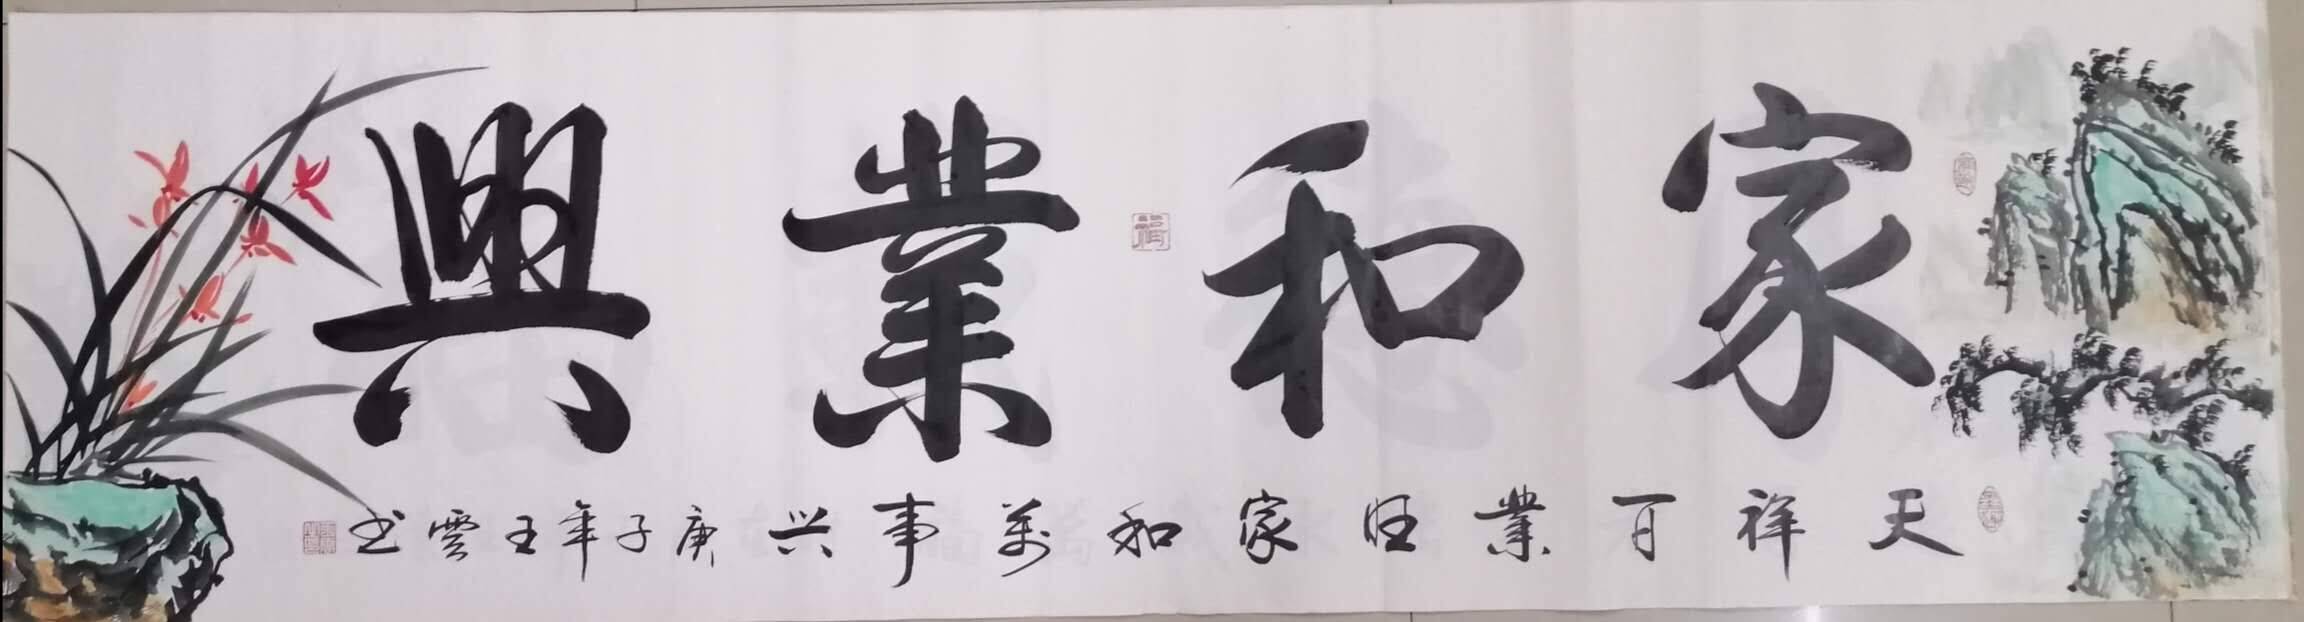 家和業興
天祥百業旺家和萬事兴庚子年王雲书